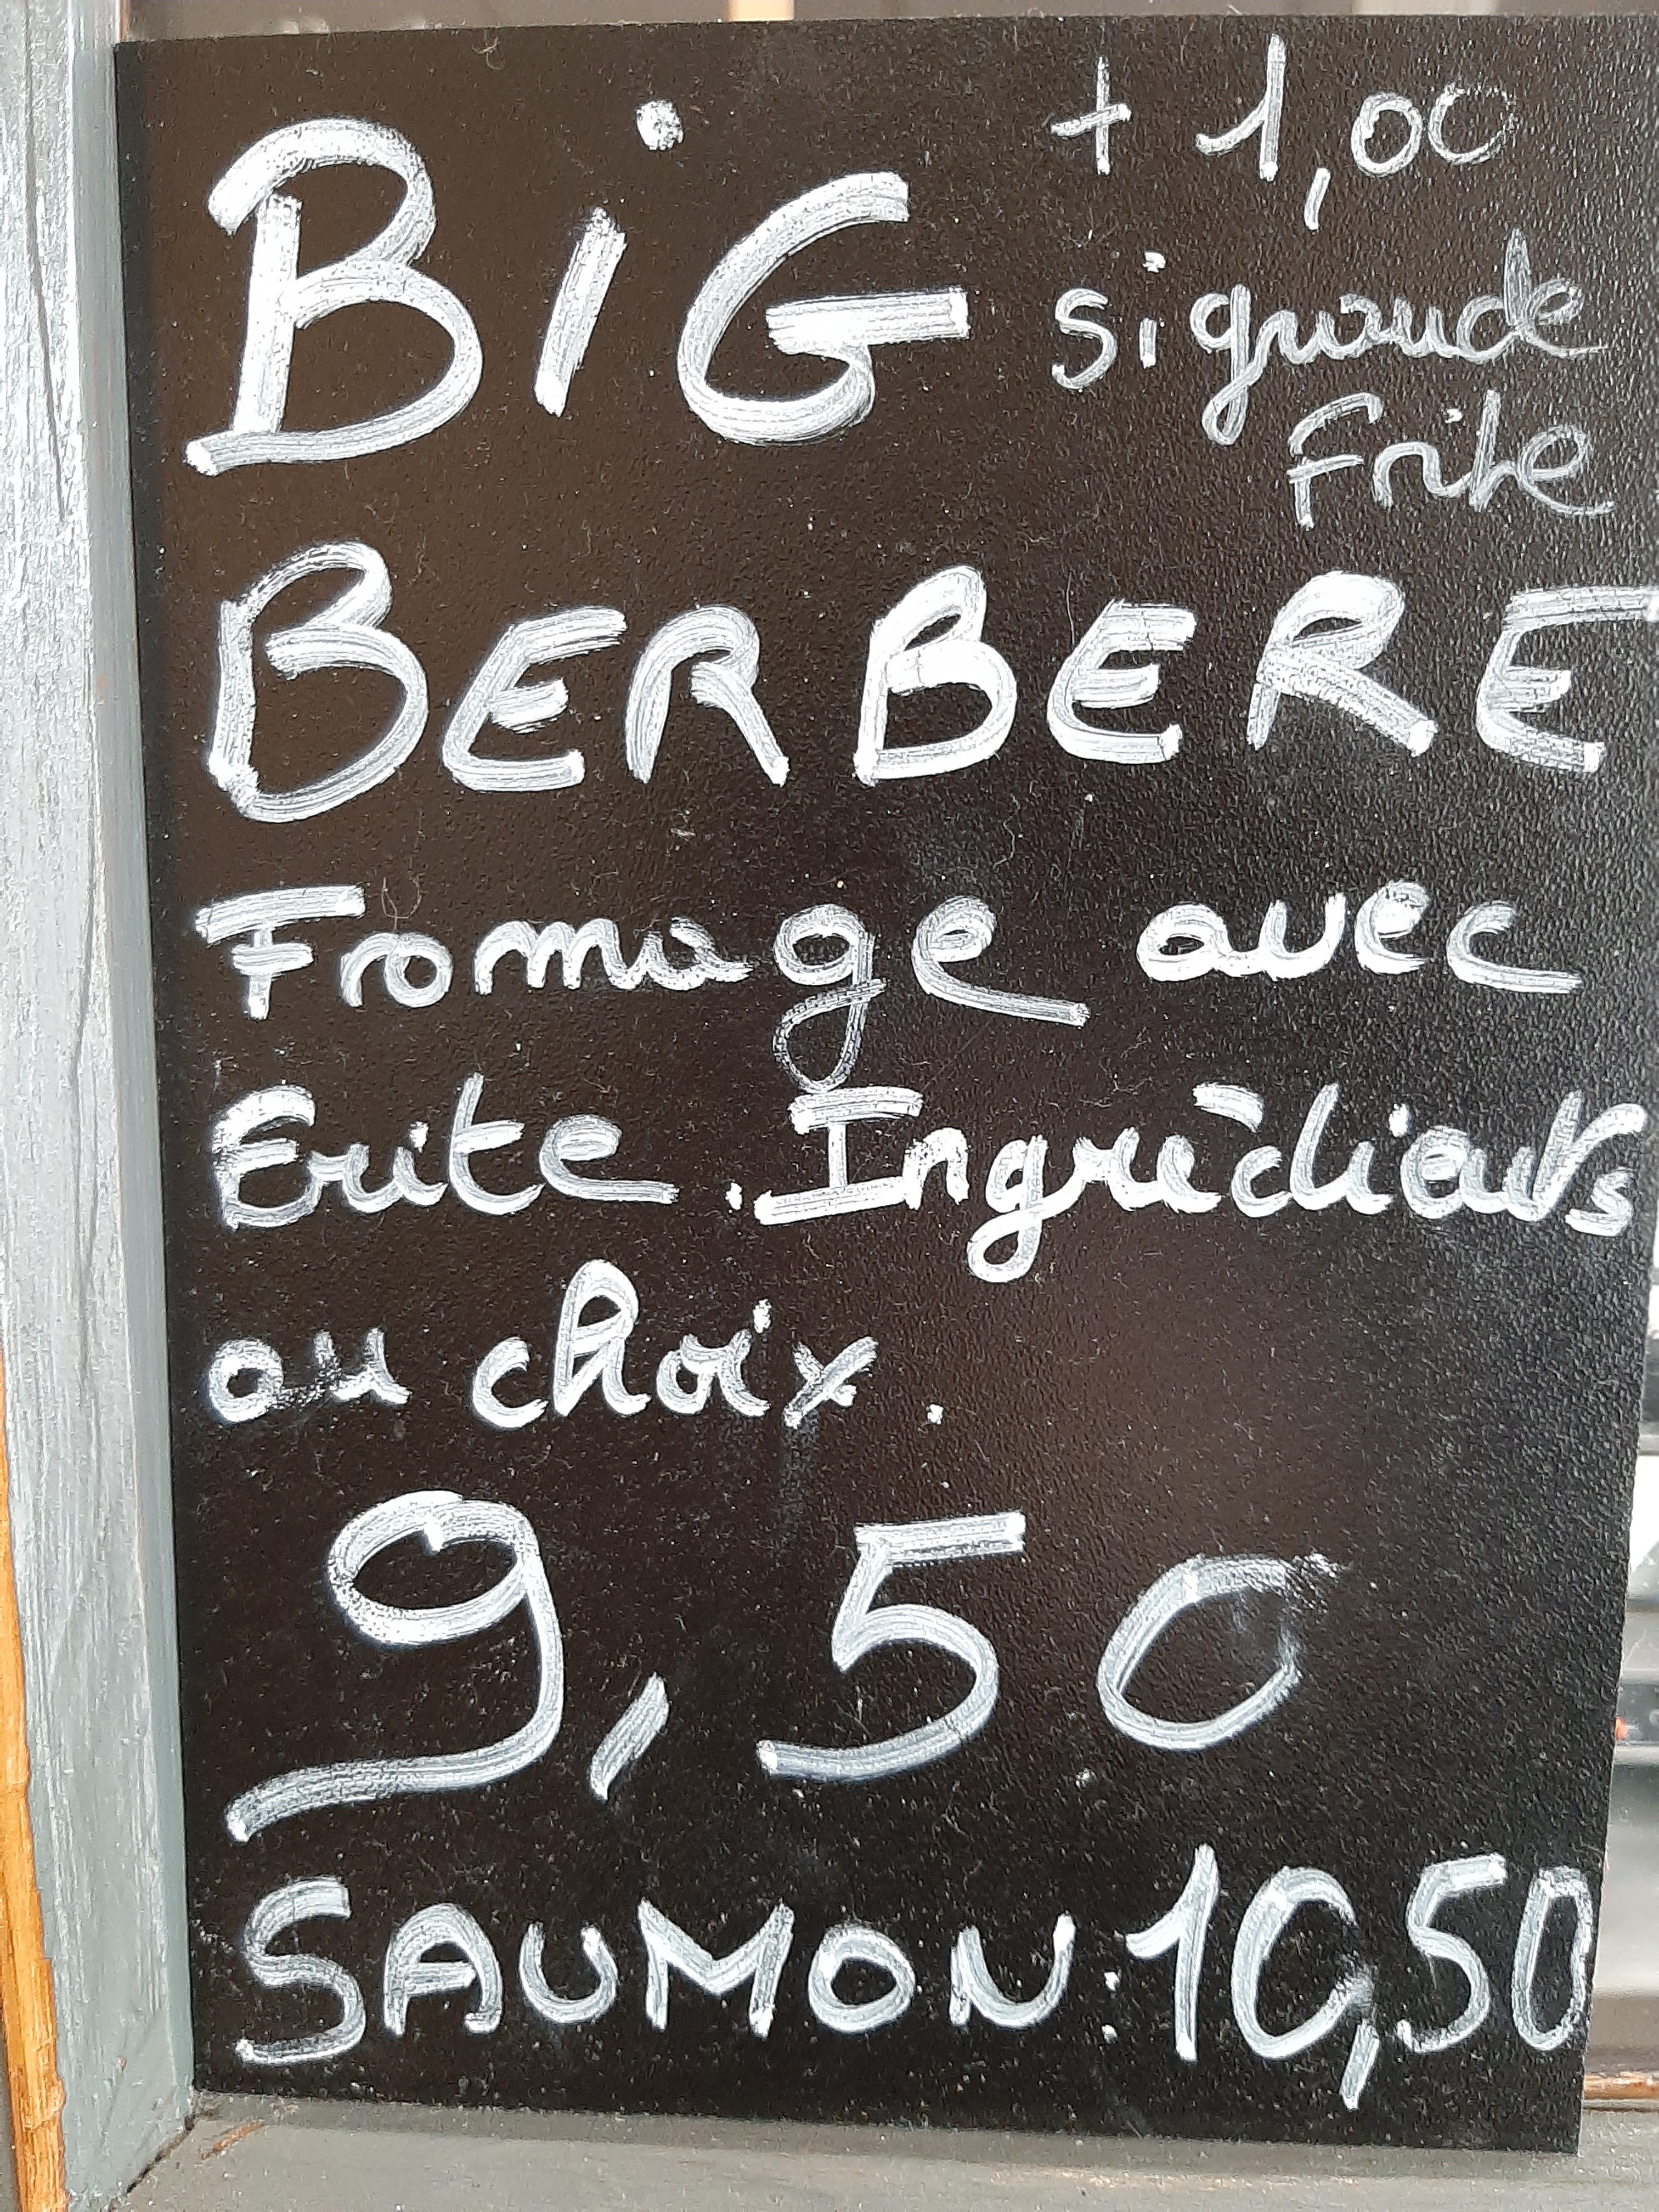 BiG
+ 1,00
si grande
Frite
BERBERE
Fromage avec
Frite. Ingrédients
au choix.
9,50
SAUMON: 10,50